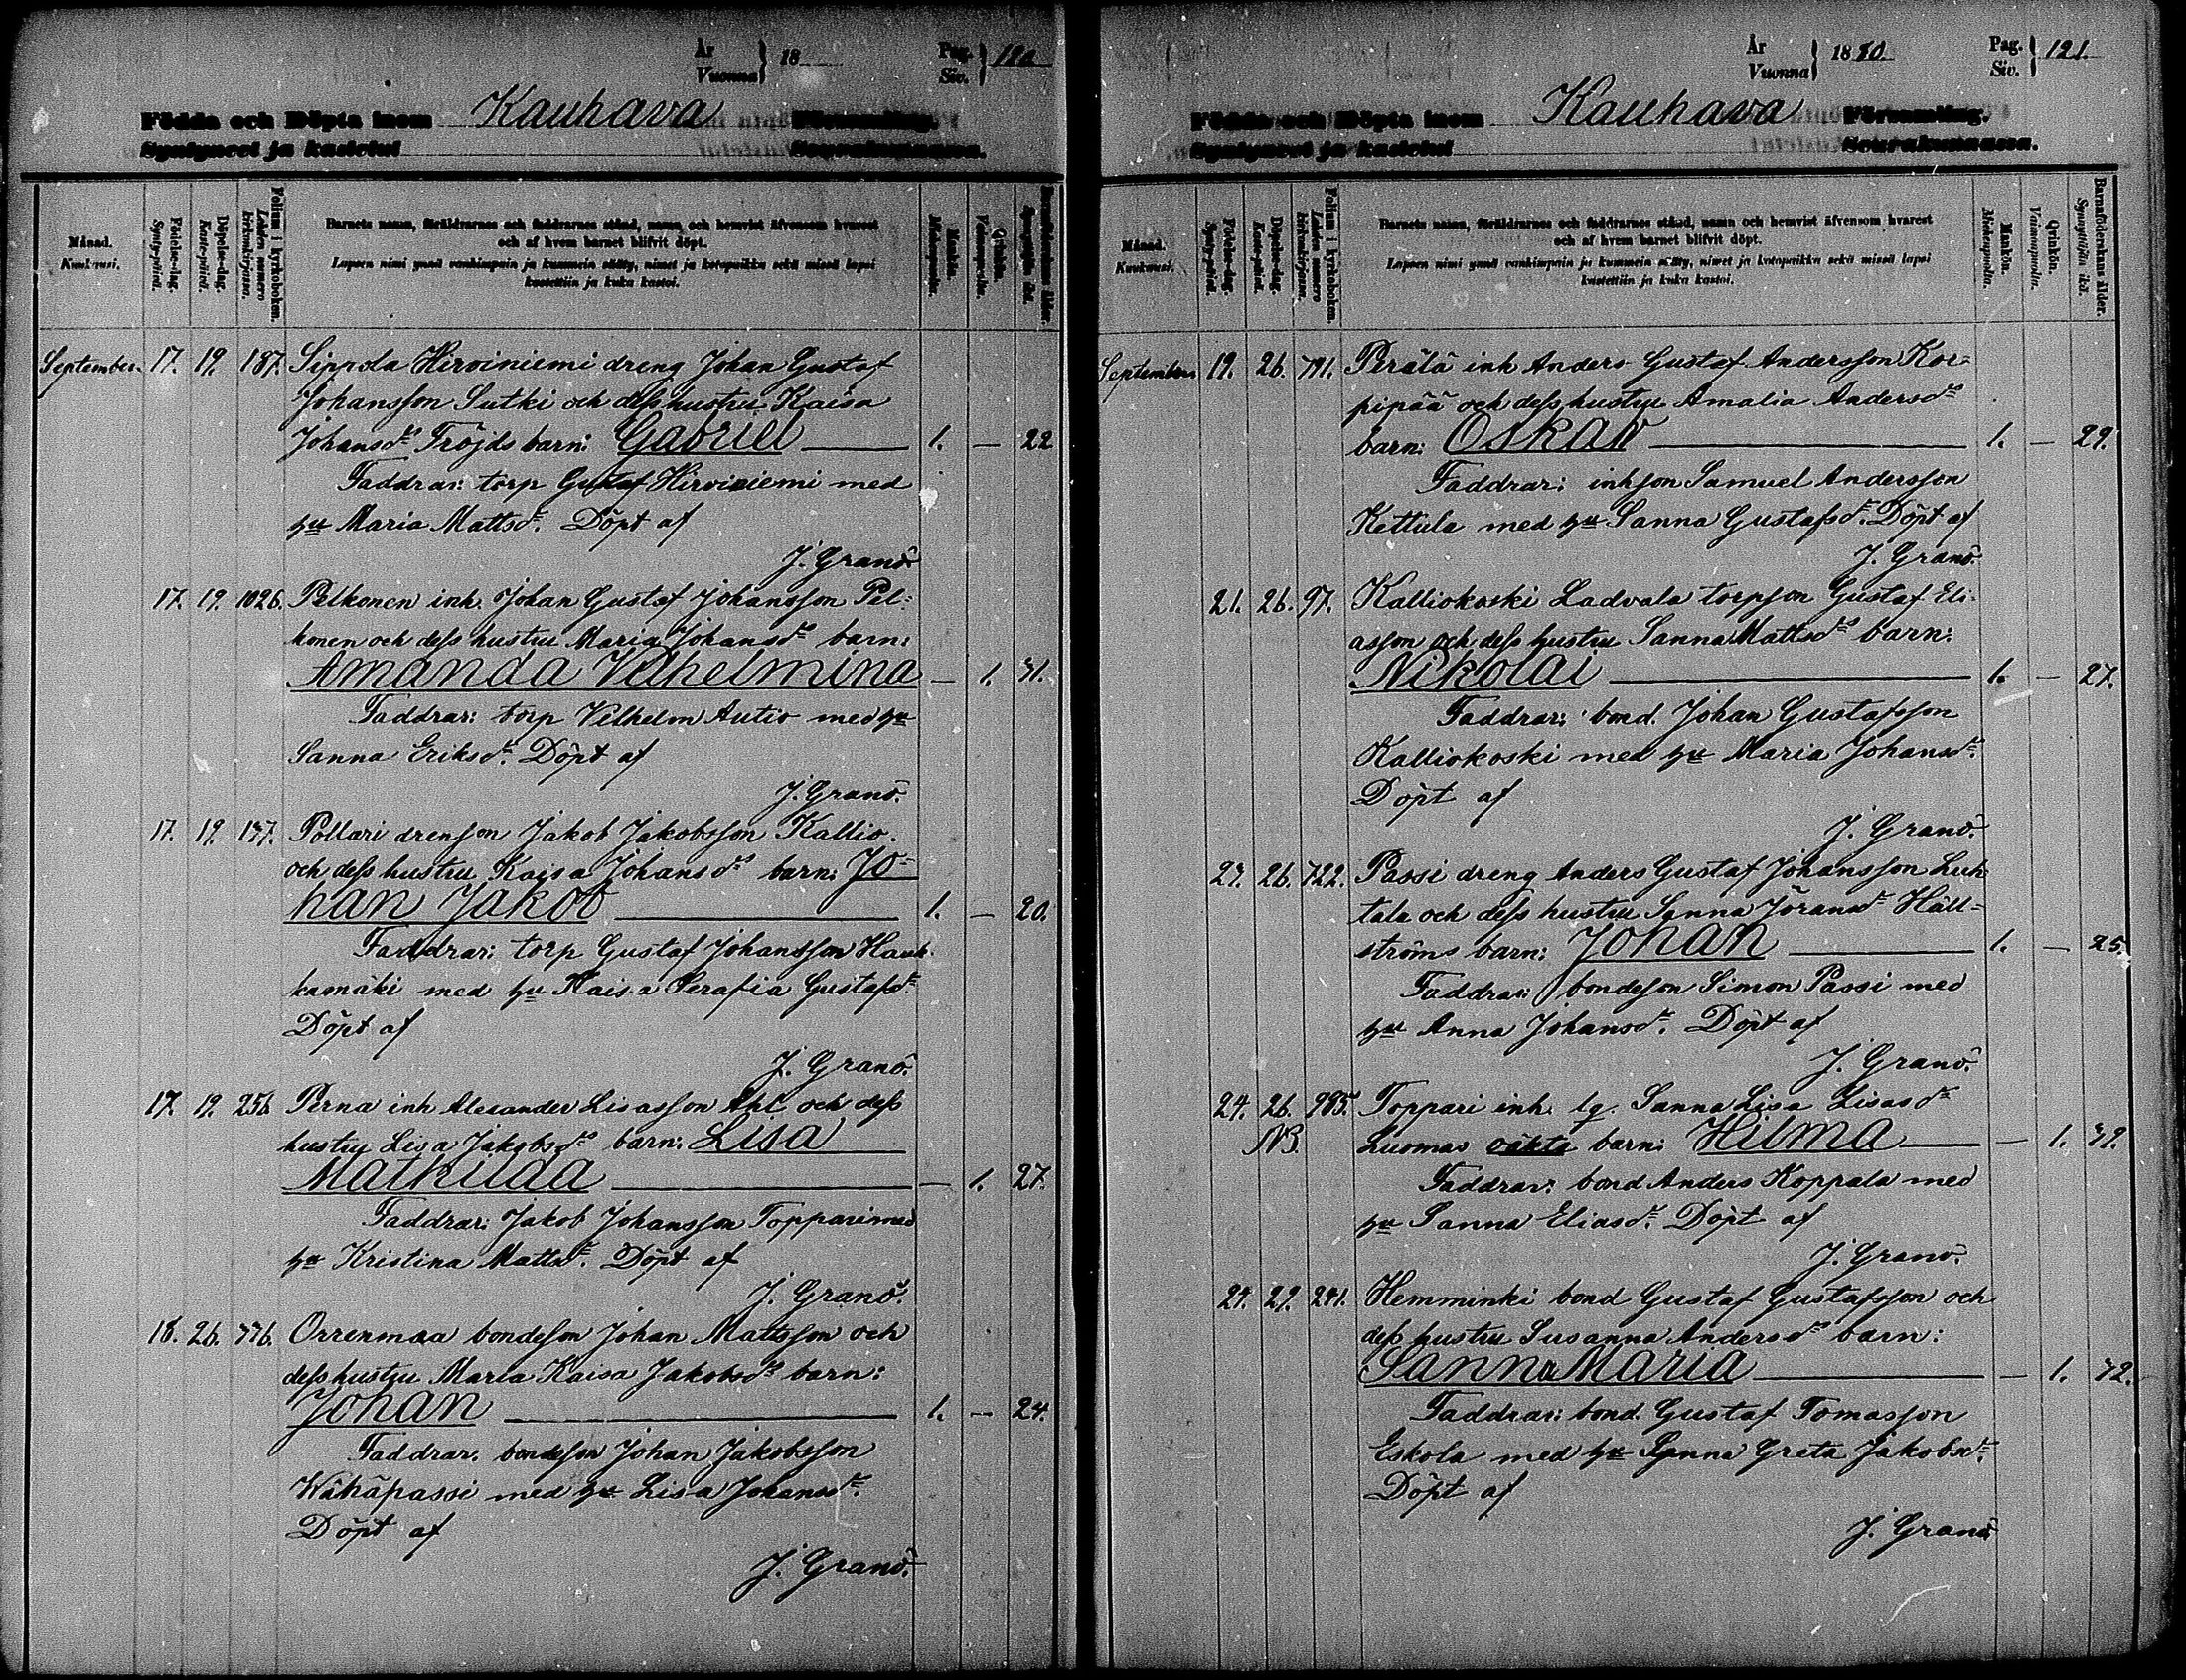 År
Vuonna } 18
Pag.
Siv. } 120
Födda och Döpta inom Kauhava Församling.
Syntyneet ja kastetut Seurakunnassa.
Månad.
Kuukausi.
Födelse-dag.
Synty-päivä.
Döpelse-dag.
Kaste-päivä.
Folium i kyrkoboken.
Lehden numero kirkonkirjassa.
Barnets namn, föräldrarnes och faddrarnes stånd, namn och hemvist äfvensom hvarest
och af hvem barnet blifvit döpt.
Lapsen nimi ynnä vanhimpain ja kummein sääty, nimet ja kotopaikka sekä missä lapsi
kastettiin ja kuka kastoi.
Mankön.
Miehenpuolia.
Qvinkön.
Vaimonpuolia.
Barnaföderskans ålder.
Synnyttäjän ikä.
September. 17. 19. 187. Sippola Hirviniemi dreng Johan Gustaf
Johansson Sutki och dess hustru Kaisa
Johansds Tröjds barn: Gabriel 1. — 22
Faddrar: torp Gustaf Hirviniemi med
hu Maria Mattsdr. Döpt af
J. Granö.
17. 19. 1026. Pelkonen inh. Johan Gustaf Johansson Pel-
konen och dess hustru Maria Johansds barn:
Amanda Vilhelmina — 1. 31.
Faddrar: torp Vilhelm Autio med hu
Sanna Eriksdr. Döpt af
J. Granö.
17. 19. Pollari drenson Jakob Jakobsson Kallio.
och dess hustru Kaisa Johansds barn: Jo-
han Jakob 1. — 20.
Faddrar: torp Gustaf Johansson Hauk-
kamäki med hu Kaisa Serafia Gustafsdr
Döpt af
J. Granö.
17. 19. 256 Perna inh Alexander Lisasson och dess
hustru Lisa Jakobsds barn: Lisa
Mathilda — 1. 27.
Faddrar: Jakob Johansson Toppari med
hu Kristina Mattsdr. Döpt af
J. Granö.
18. 26. 776. Orrenmaa bondeson Johan Mattsson och
dess hustru Maria Kaisa Jakobsds barn:
Johan 1. — 24.
Faddrar: bondeson Johan Jakobsson
Wähäpassi med hu Lisa Johansdr.
Döpt af
J. Granö.
År
Vuonna } 1880.
Pag.
Siv. } 121.
Födda och Döpta inom Kauhava Församling.
Syntyneet ja kastetut Seurakunnassa.
Månad.
Kuukausi.
Födelse-dag.
Synty-päivä.
Döpelse-dag.
Kaste-päivä.
Folium i kyrkobokem.
Lehden numero kirkonkirjassa.
Barnets namn, föräldrarnes och faddrarnes stånd, namn och hemvist äfvensom hvarest
och af hvem barnet blifvit döpt.
Lapsen nimi ynnä vanhimpain ja kummein sääty, nimet ja kotopaikka sekä missä lapsi
kastettiin ja kuka kastoi.
Mankön.
Miehenpuolia.
Qvinkön.
Vaimonpuolia.
Barnaföderskans ålder.
Synnyttäjän ikä.
September 19. 26. 791. Perälä inh Anders Gustaf Andersson Kor-
pipää och dess hustru Amalia Andersds
barn: Oskar 1. — 29.
Faddrar: inhson Samuel Andersson
Kettula med hu Sanna Gustafsdr. Döpt af
J. Granö.
21. 26. 97. Kalliokoski Ladvala torpson Gustaf Eli-
asson och dess hustru Sanna Mattsds barn:
Nikolai 1. — 27.
Faddrar: bond. Johan Gustafsson
Kalliokoski med hu Maria Johansdr.
Döpt af
J. Granö.
26. 722. Passi dreng Anders Gustaf Johansson Luh-
tala och dess hustru Sanna Jöransdr Häll-
ströms barn: Johan 1. — 25.
Faddrar: bondeson Simon Passi med
hu Anna Johansdr. Döpt af
J. Granö.
24. 26. 985. Toppari inh. lq. Sanna Lisa Lisasdr
NB. Luomas oäkta barn: Hilma — 1. 39.
Faddrar: bond Anders Koppala med
hu Sanna Eliasdr. Döpt af
J. Granö.
24. 29. 241. Hemminki bond Gustaf Gustafsson och
dess hustru Susanna Andersds barn:
Sanna Maria — 1. 42.
Faddrar: bond. Gustaf Tomasson
Eskola med hu Sanna Greta Jakobsdr.
Döpt af
J. Granö